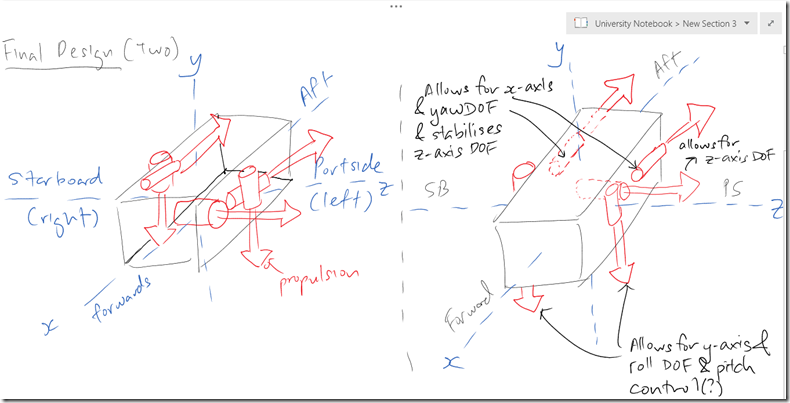 University Notebook > New Section 3
Final Design (Two)
y
Aft
Starboard
(right)
Portside
(left)
z
propulsion
forwards
x
y
Aft
Allows for x-axis
& yaw DOF
& stabilises
z-axis DOF
allows for
z-axis DOF
SB
PS
z
Forward
x
Allows for y-axis &
roll DOF & pitch
control(?)